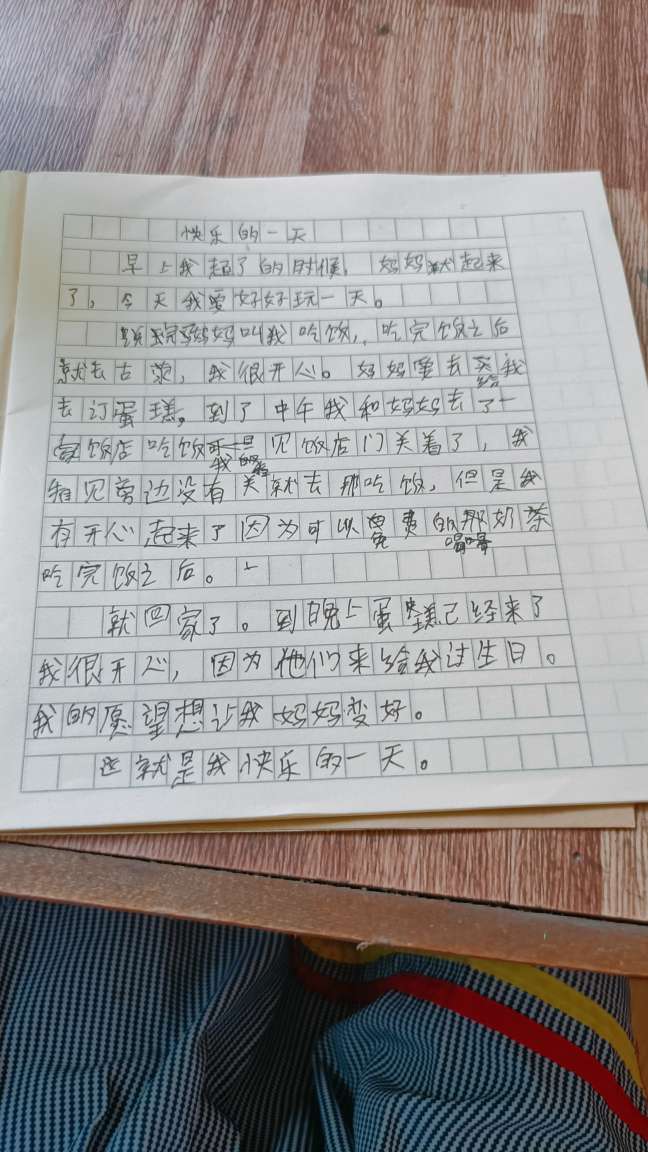 快乐的一天
早上我起了的时候，妈妈就起来
了，今天我要好好玩一天。
妈妈叫我吃饭，吃完饭之后
就去古，我很开心。妈妈要去给我
去订蛋糕。到了中午我和妈妈去了一
家饭店吃饭我见饭店门关着了，我
见旁边没有关就去那吃饭，但是我
有开心起来了因为可以免费的喝那奶茶
吃完饭之后。
就回家了。到晚上蛋糕已经来了
我很开心，因为他们来给我过生日。
我的愿望想让我妈妈变好。
这就是我快乐的一天。